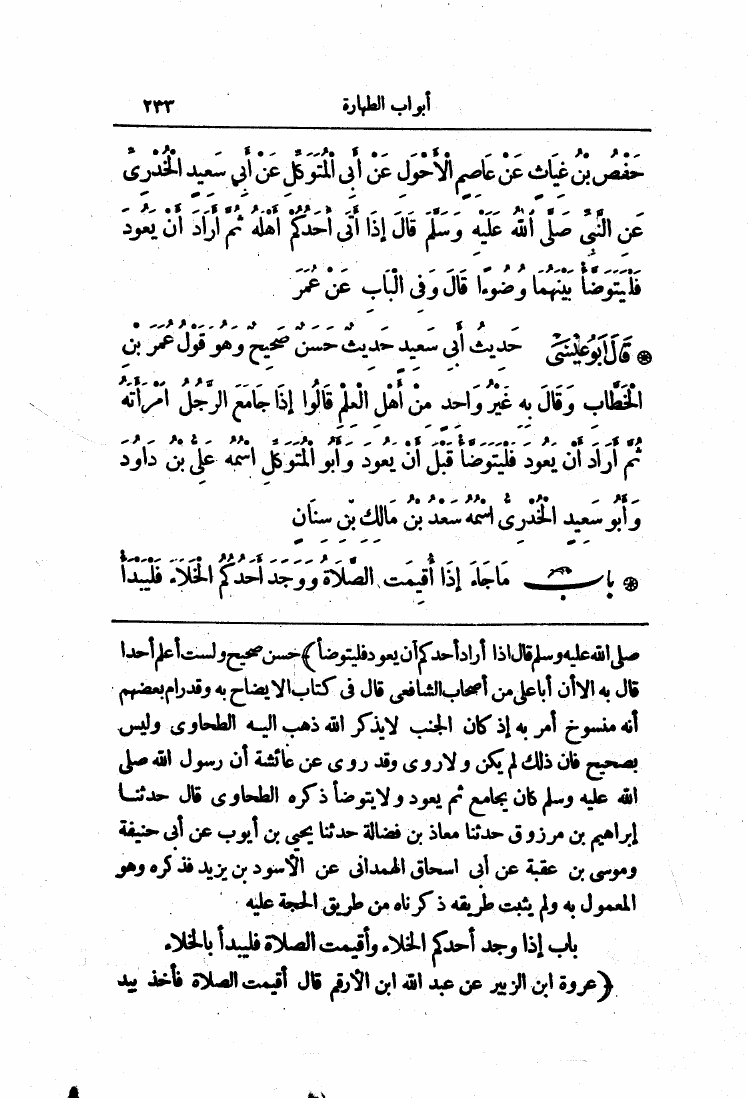 أبواب الطهارة ٢٣٣
حَفْصُ بْنُ غِيَاثٍ عَنْ عَاصِمٍ الْأَحْوَلِ عَنْ أَبِى الْمُتَوَكِّلِ عَنْ أَبِي سَعِيدٍ الْخُدْرِىِّ
عَنِ النَّبِيِّ صَلَّى اللهُ عَلَيْهِ وَسَلَّمَ قَالَ إِذَا أَتَى أَحَدُكُمْ أَهْلَهُ ثُمَّ أَرَادَ أَنْ يَعُودَ
فَلْيَتَوَضَّأْ بَيْنَهُمَا وُضُوءًا قَالَ وَفِى الْبَابِ عَنْ عُمَرَ
❋ قَالَ أَبُو عِيْسَى حَدِيثُ أَبِي سَعِيدٍ حَدِيثٌ حَسَنٌ صَحِيحٌ وَهُوَ قَوْلُ عُمَرَ بْنِ
الْخَطَّابِ وَقَالَ بِهِ غَيْرُ وَاحِدٍ مِنْ أَهْلِ الْعِلْمِ قَالُوا إِذَا جَامَعَ الرَّجُلُ امْرَأَتَهُ
ثُمَّ أَرَادَ أَنْ يَعُودَ فَلْيَتَوَضَّأْ قَبْلَ أَنْ يَعُودَ وَأَبُو الْمُتَوَكِّلِ اسْمُهُ عَلِىُّ بْنُ دَاوُدَ
وَأَبُو سَعِيدٍ الْخُدْرِىُّ اسْمُهُ سَعْدُ بْنُ مَالِكِ بْنِ سِنَانٍ
❋ بابُ مَا جَاءَ إِذَا أُقِيمَتِ الصَّلَاةُ وَوَجَدَ أَحَدُكُمُ الْخَلَاءَ فَلْيَبْدَأْ
صلى الله عليه وسلم قال اذا أراد أحدكم أن يعود فليتوضأ) حسن صحيح ولست أعلم أحدا
قال به الا أن أبا على من أصحاب الشافعى قال فى كتاب الايضاح به وقد رام بعضهم
أنه منسوخ أمر به إذ كان الجنب لا يذكر الله ذهب اليه الطحاوى وليس
بصحيح فان ذلك لم يكن ولا روى وقد روى عن عائشة أن رسول الله صلى
الله عليه وسلم كان يجامع ثم يعود ولا يتوضأ ذكره الطحاوى قال حدثنا
إبراهيم بن مرزوق حدثنا معاذ بن فضالة حدثنا يحيى بن أيوب عن أبى حنيفة
وموسى بن عقبة عن أبى اسحاق الهمدانى عن الأسود بن يزيد فذكره وهو
المعمول به ولم يثبت طريقه ذكرناه من طريق الحجة عليه
باب إذا وجد أحدكم الخلاء وأقيمت الصلاة فليبدأ بالخلاء
(عروة ابن الزبير عن عبد الله ابن الأرقم قال أقيمت الصلاة فأخذ بيد